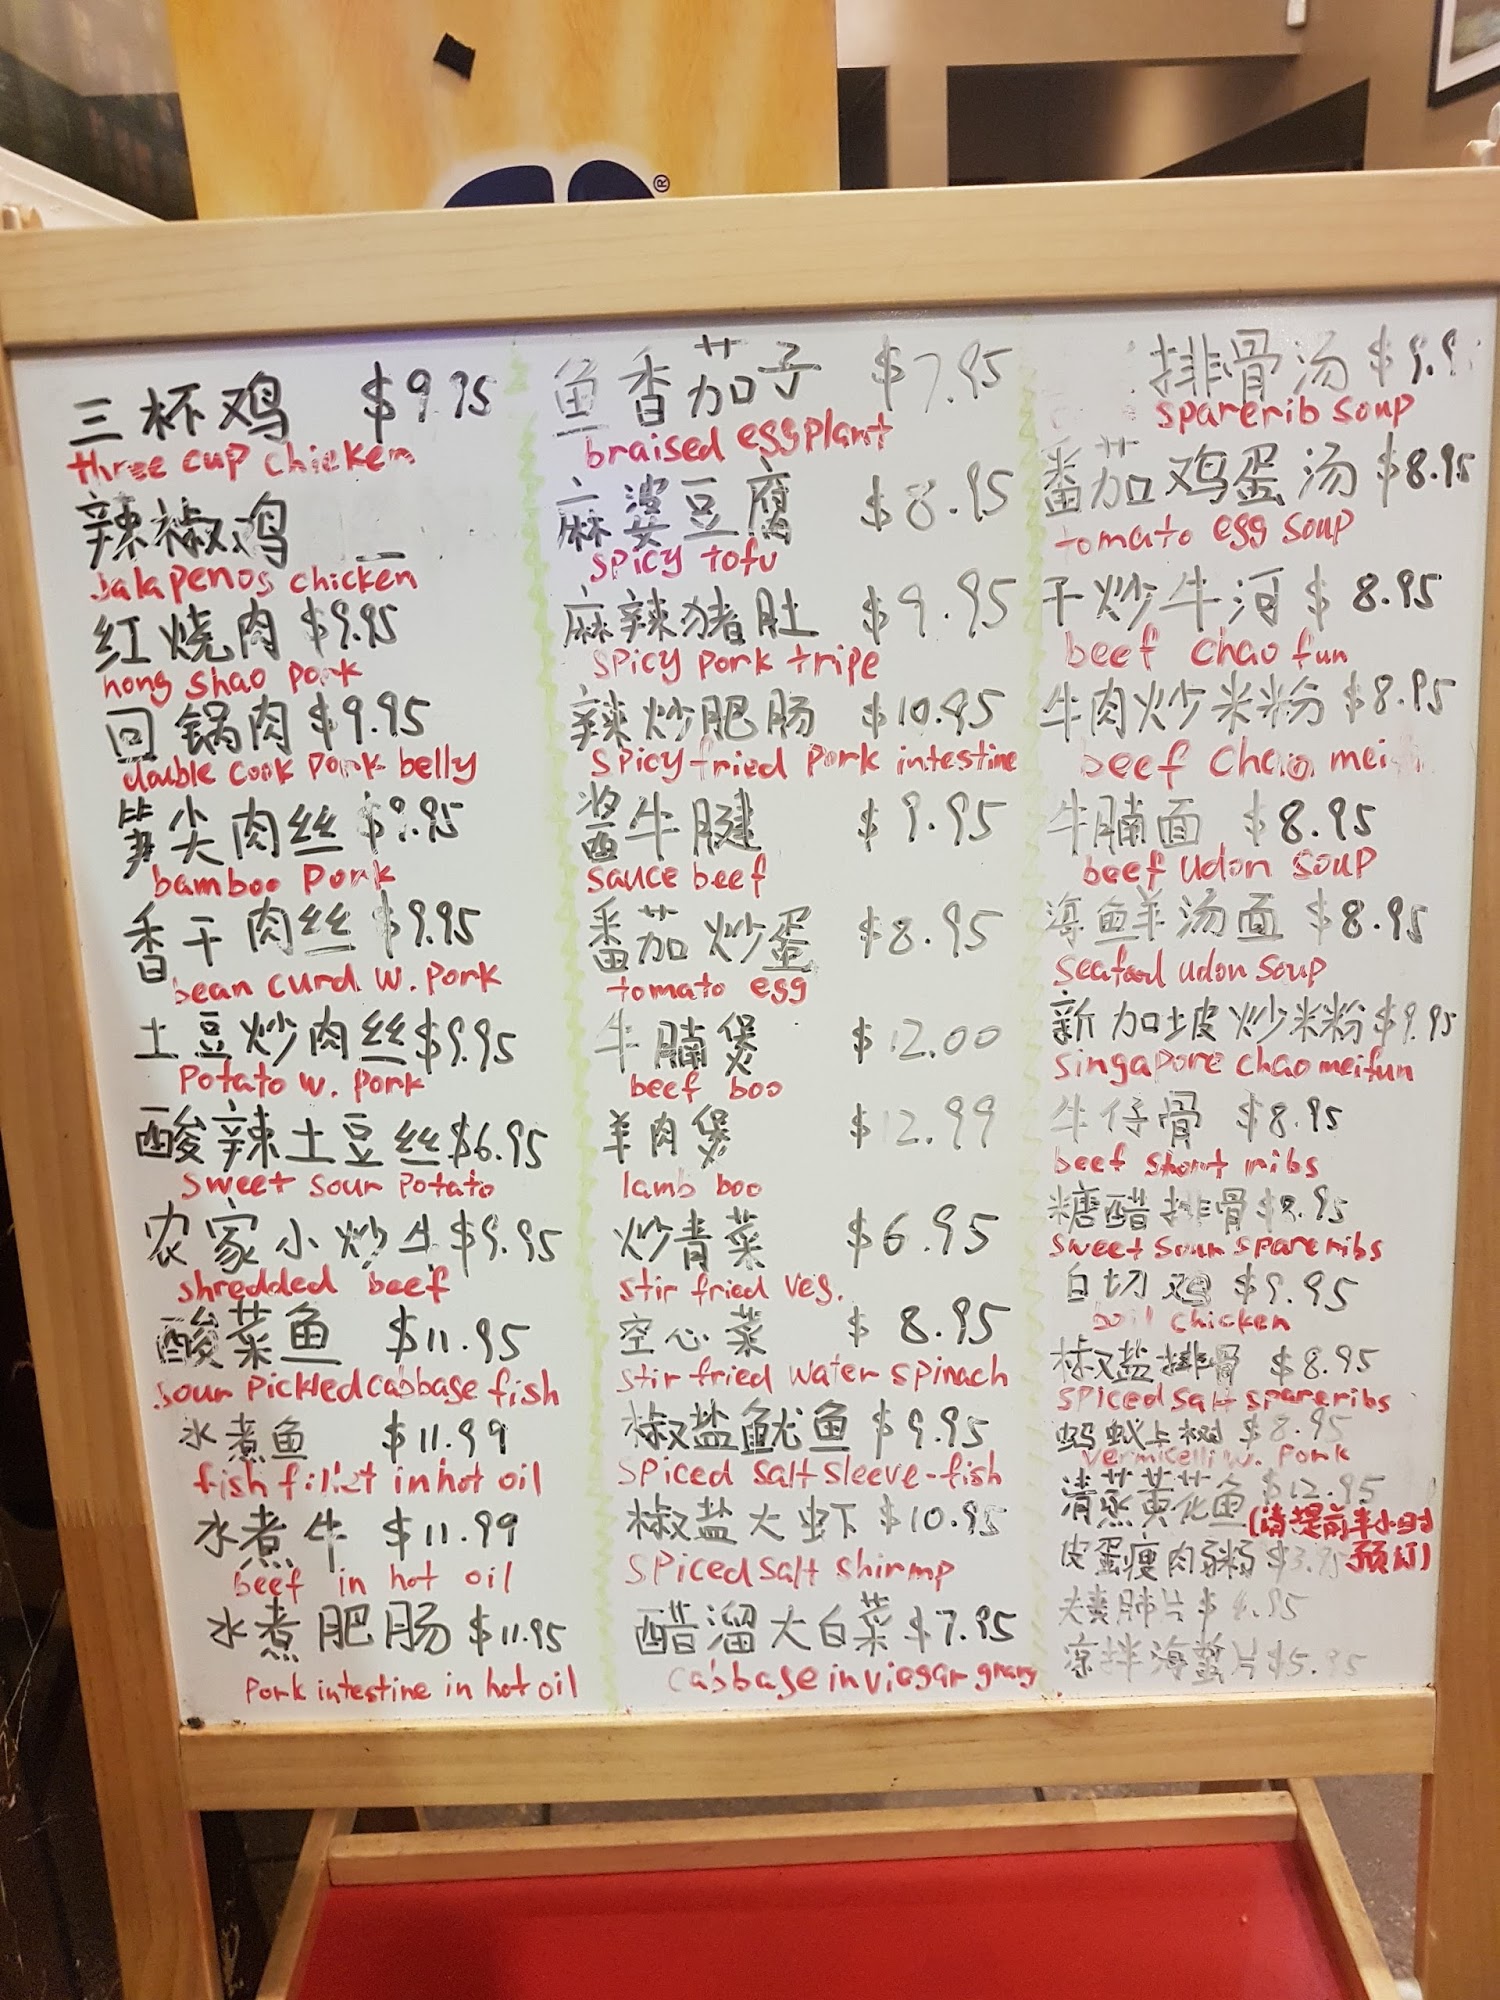 ®
三杯鸡 $9.95
three cup chicken
辣椒鸡
Jalapenos chicken
红烧肉 $9.95
hong shao pork
回锅肉 $9.95
double cook pork belly
笋尖肉丝 $9.95
bamboo pork
香干肉丝 $9.95
bean curd w. pork
土豆炒肉丝 $9.95
potato w. pork
酸辣土豆丝 $6.95
sweet sour potato
农家小炒牛 $9.95
shredded beef
酸菜鱼 $11.95
sour pickled cabbage fish
水煮鱼 $11.99
fish fillet in hot oil
水煮牛 $11.99
beef in hot oil
水煮肥肠 $11.95
pork intestine in hot oil
鱼香茄子 $7.95
braised eggplant
麻婆豆腐 $8.95
spicy tofu
麻辣猪肚 $9.95
spicy pork tripe
辣炒肥肠 $10.95
spicy fried pork intestine
酱牛腱 $9.95
sauce beef
番茄炒蛋 $8.95
tomato egg
牛腩煲 $12.00
beef boo
羊肉煲 $12.99
lamb boo
炒青菜 $6.95
stir fried veg.
空心菜 $8.95
stir fried water spinach
椒盐鱿鱼 $9.95
spiced salt sleeve-fish
椒盐大虾 $10.95
spiced salt shirmp
醋溜大白菜 $7.95
cabbage in viegar
排骨汤
sparerib soup
番茄鸡蛋汤 $8.95
tomato egg soup
干炒牛河 $8.95
beef chao fun
牛肉炒米粉 $8.95
beef chao mei
牛腩面 $8.95
beef udon soup
海鲜汤面 $8.95
seafood udon soup
新加坡炒米粉 $9.95
singapore chao meifun
牛仔骨 $8.95
beef short ribs
糖醋排骨
sweet sour spareribs
白切鸡 $9.95
boil chicken
椒盐排骨 $8.95
spiced salt spareribs
蚂蚁上树 $8.95
vermicelli w. pork
清蒸黄花鱼 $12.95
(请提前半小时
皮蛋瘦肉粥 $3.95 预订)
夫妻肺片
凉拌海蜇片 $5.95